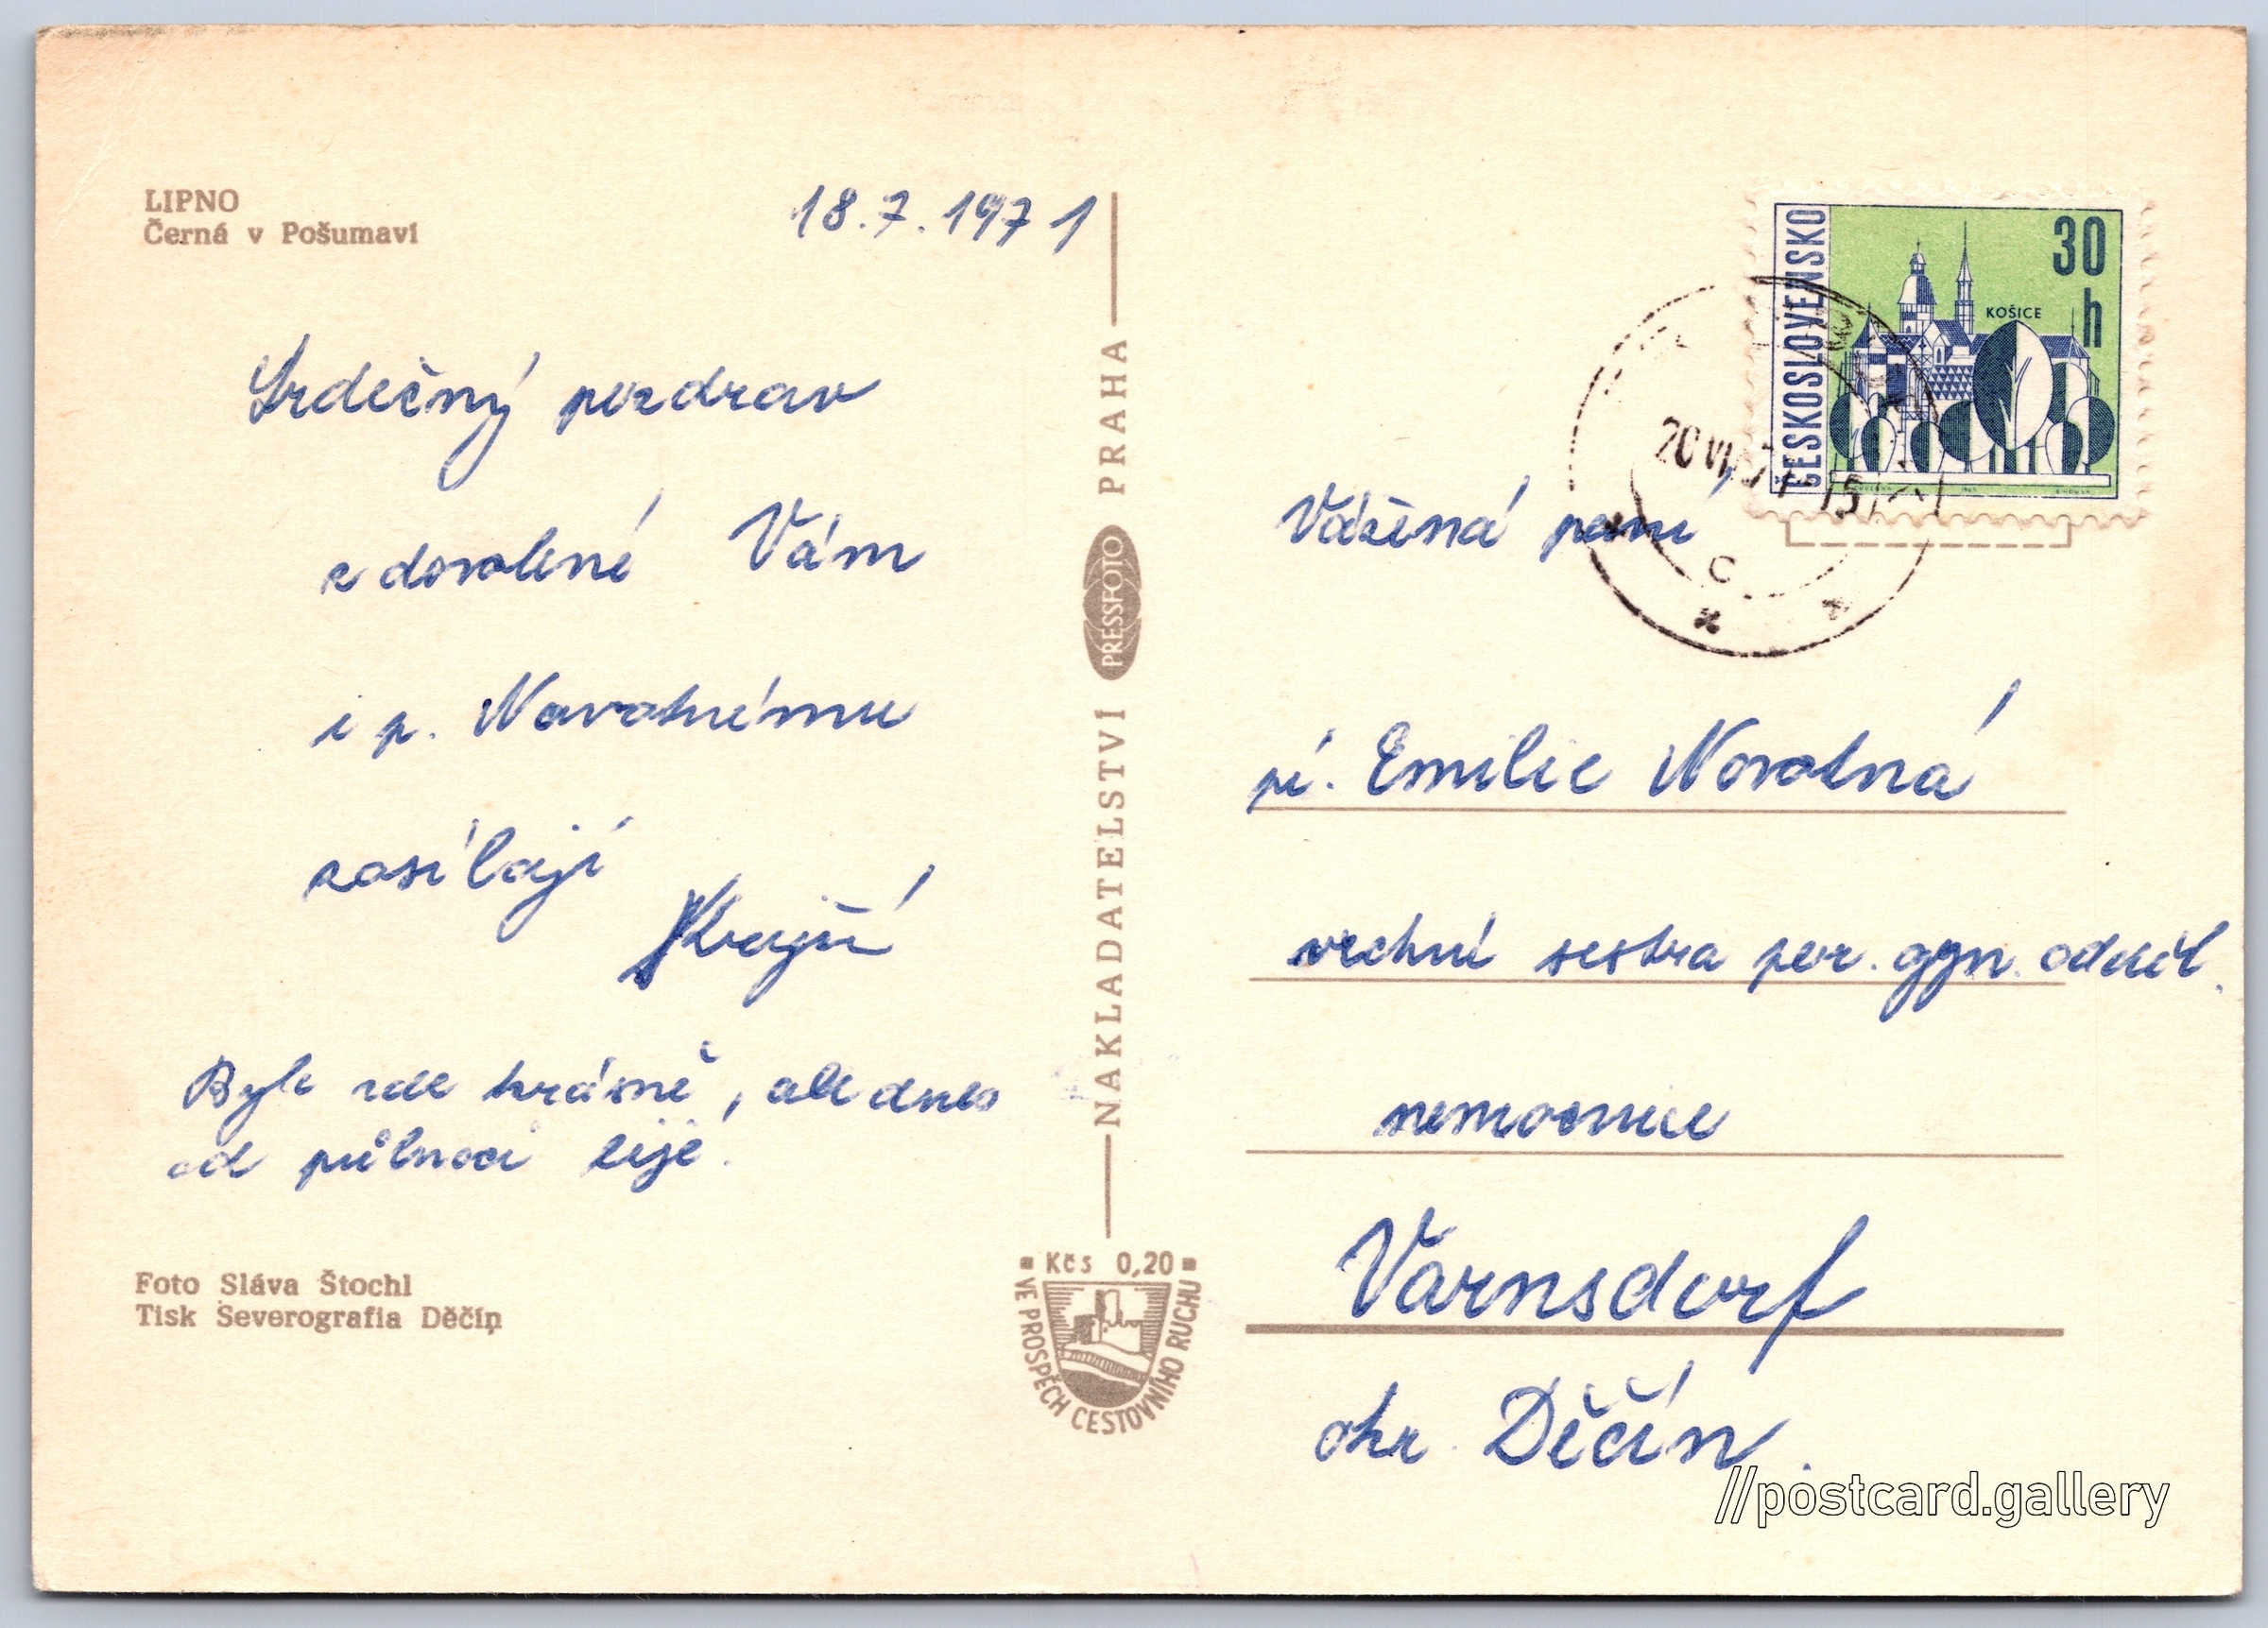 LIPNO
Černá v Pošumaví
18.7.1971
Srdečný pozdrav
z dovolené Vám
i p. Novotnému
zasílají
Byle zde krásně, ale dnes
od půlnoci lije.
Foto Sláva Štochl
Tisk Severografia Děčín
NAKLADATELSTVÍ PRESSFOTO PRAHA
Kčs 0,20
VE PROSPĚCH CESTOVNÍHO RUCHU
ČESKOSLOVENSKO
30
h
KOŠICE
Vážená paní
pí. Emilie Novotná
vrchní sestra por. gyn. odděl.
nemocnice
Varnsdorf
okr. Děčín.
//postcard.gallery